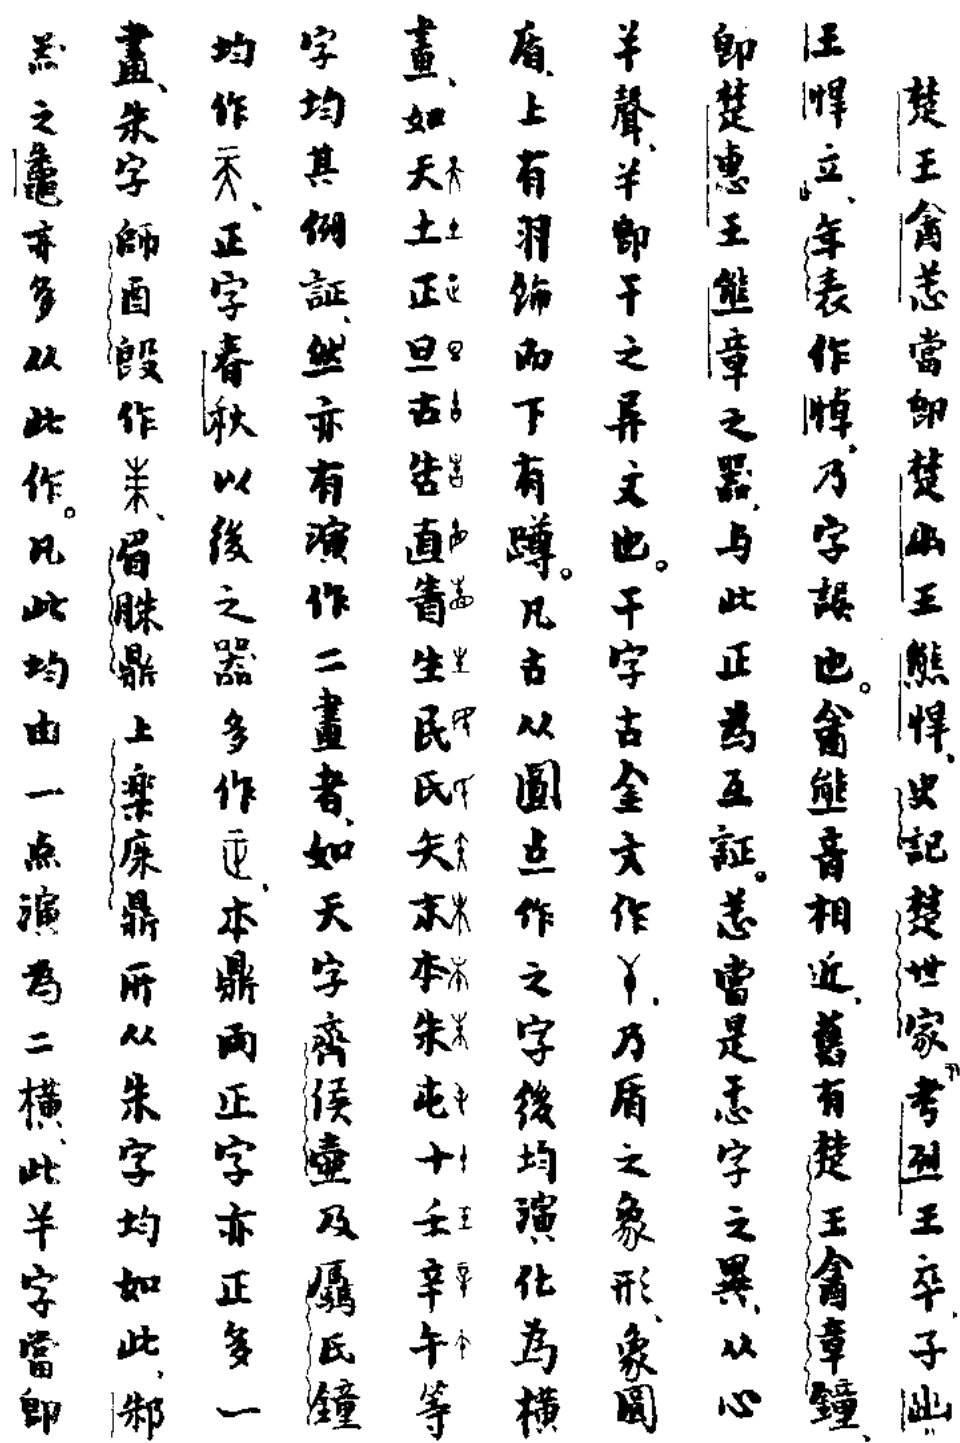 楚王酓忎當即楚幽王熊悍、史記楚世家考烈王卒、子幽
王悍立、年表作悼、乃字誤也。酓熊音相近、舊有楚王酓章鐘、
即楚惠王熊章之器、与此正為互証。忎當是忎字之異、从心
𢆉聲、𢆉即干之异文也。干字古金文作、乃盾之象形、象圓
盾、上有羽飾而下有蹲。凡古从圓点作之字後均演化為橫
畫、如天土正旦古告直𤯍生民氏矢末本朱屯十壬辛午等
字均其例証、然亦有演作二畫者、如天字齊侯壺及𠫑氏鐘
均作、正字春秋以後之器多作、本鼎兩正字亦正多一
畫、朱字師酉𣪘作、眉䏭鼎上樂床鼎所从朱字均如此、邾
器之鼄亦多从此作。凡此均由一点演為二橫、此𢆉字當即